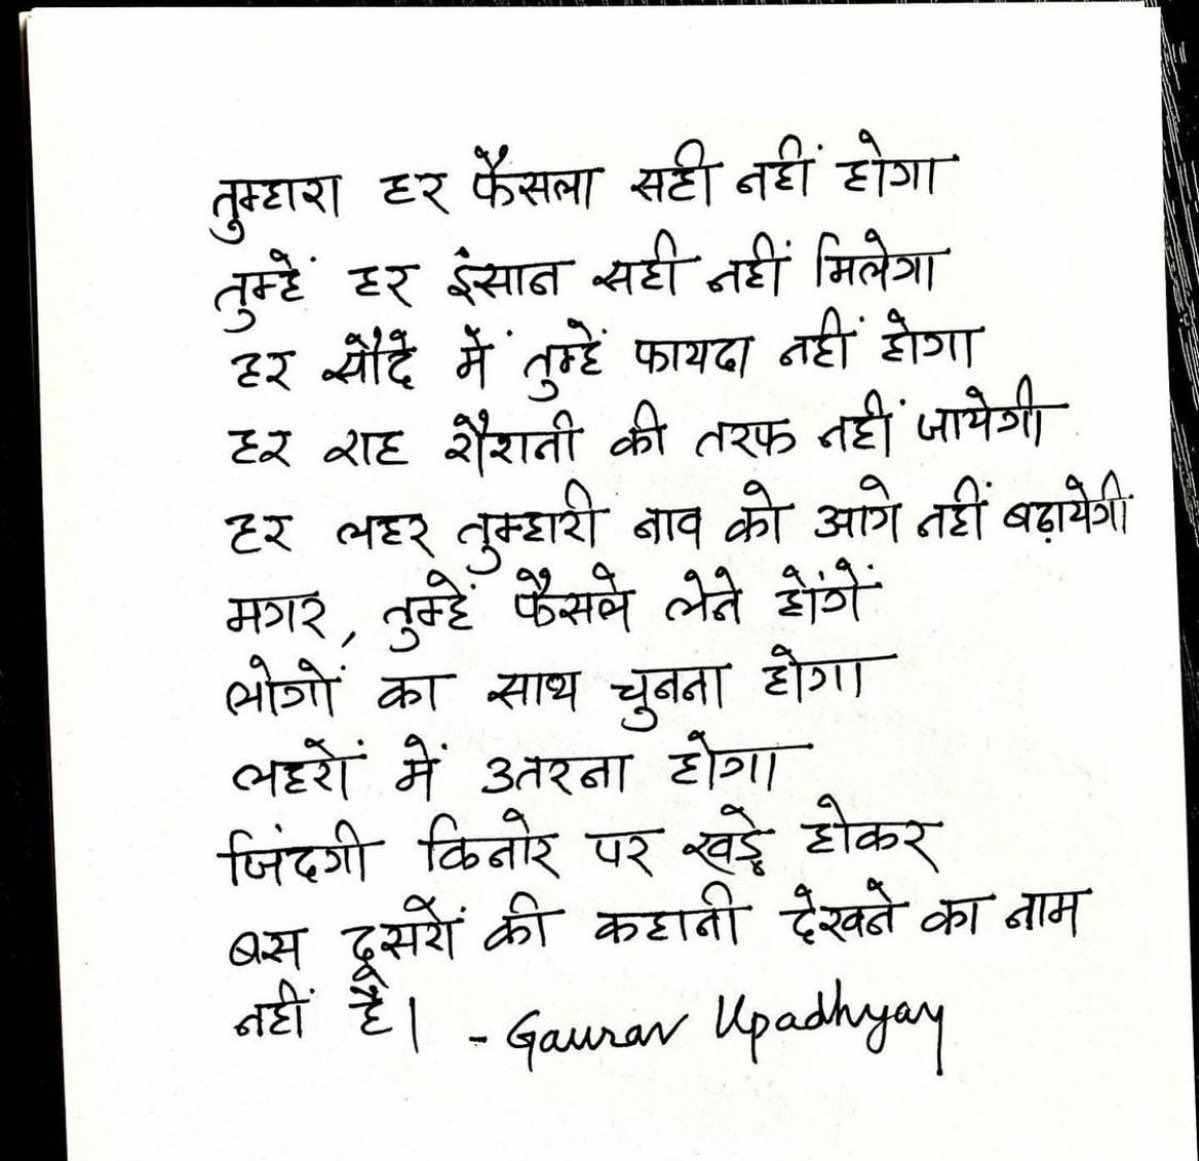 तुम्हारा हर फैसला सही नहीं होगा
तुम्हें हर इंसान सही नहीं मिलेगा
हर सौदे में तुम्हें फायदा नहीं होगा
हर राह रौशनी की तरफ नहीं जायेगी
हर लहर तुम्हारी नाव को आगे नहीं बढ़ायेगी
मगर, तुम्हें फैसले लेने होंगें
लोगों का साथ चुनना होगा
लहरों में उतरना होगा
जिंदगी किनारे पर खड़े होकर
बस दूसरों की कहानी देखने का नाम
नहीं है। - Gaurav Upadhyay